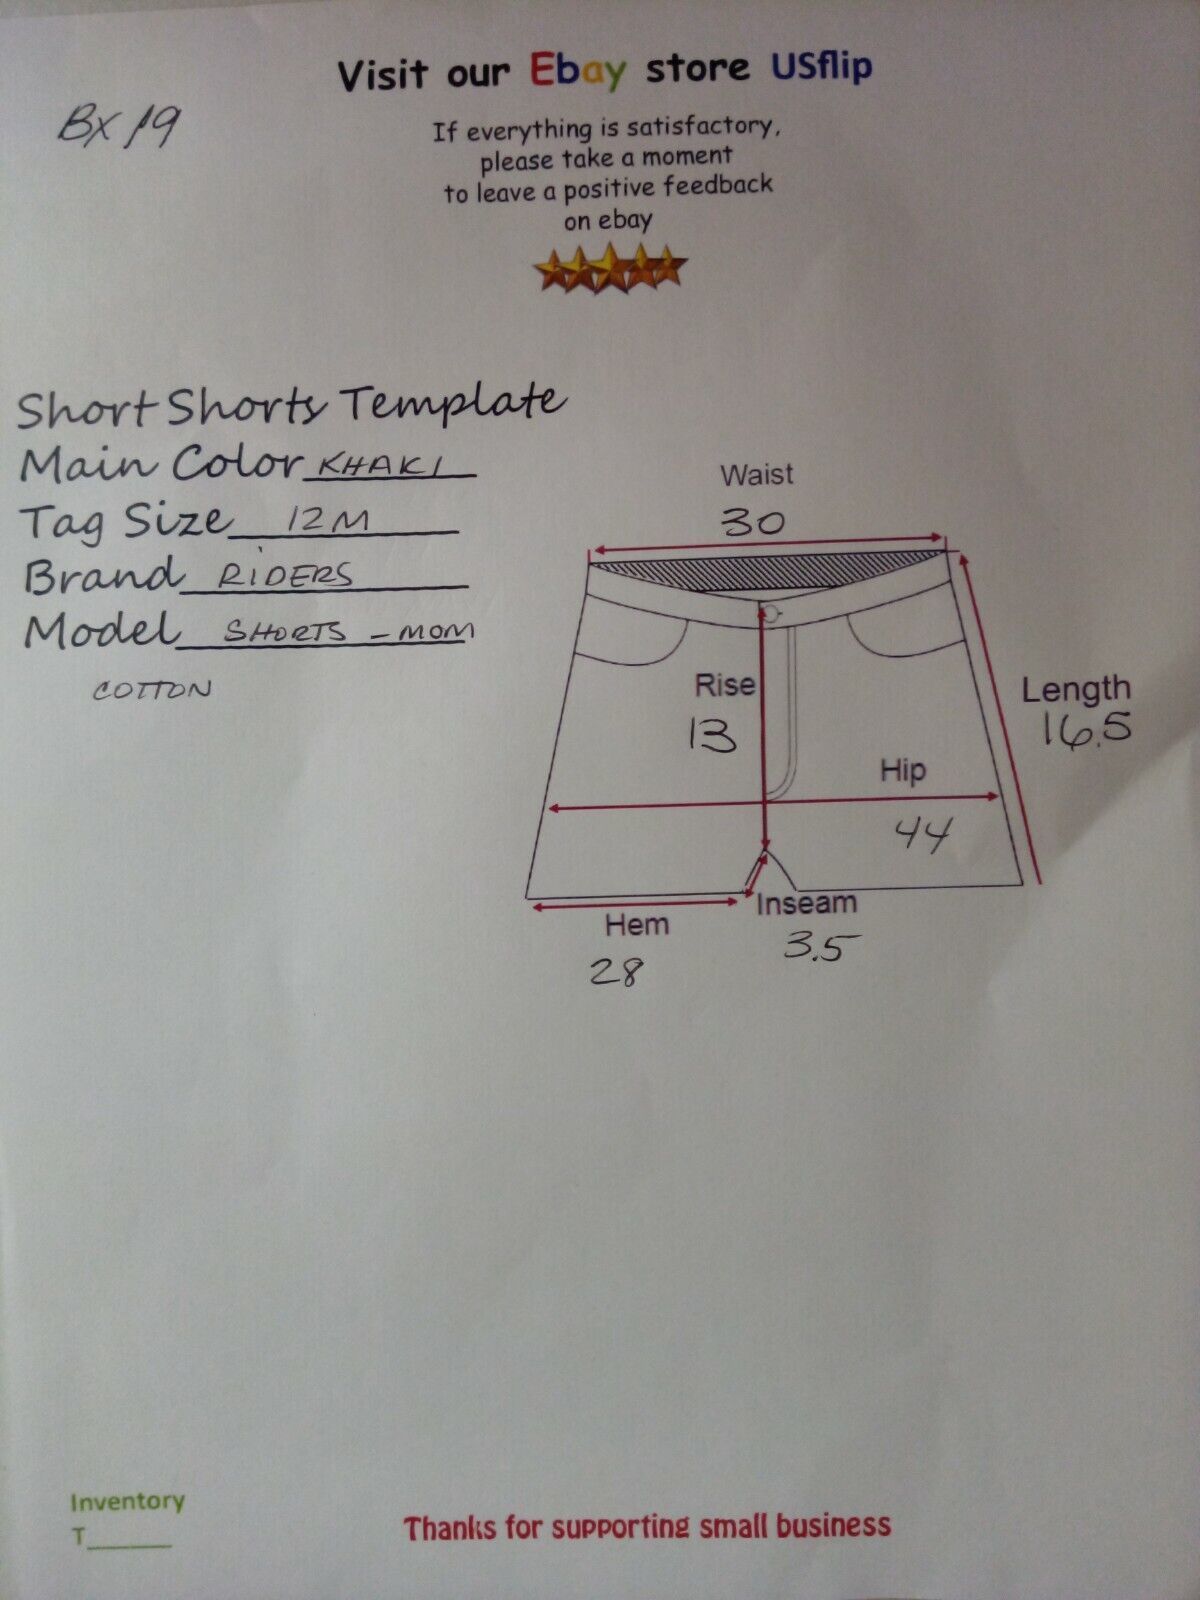 Visit our Ebay store USflip
BX 19
If everything is satisfactory,
please take a moment
to leave a positive feedback
on ebay
Short Shorts Template
Main Color KHAKI
Tag Size 12M
Brand RIDERS
Model SHORTS - MOM
COTTON
Waist
30
Rise
13
Length
16.5
Hip
44
Inseam
3.5
Hem
28
Inventory
T______
Thanks for supporting small business